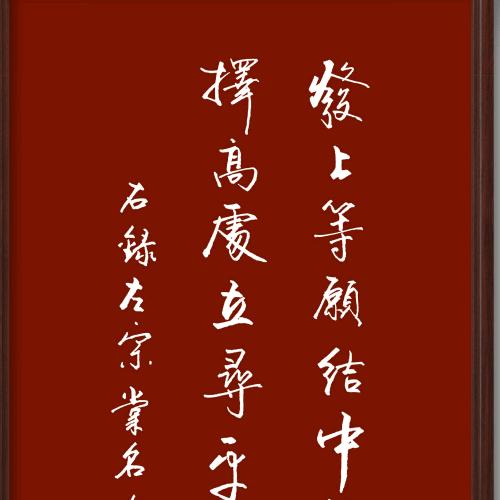 發上等願結中
擇高處立尋平
右錄左宗棠名